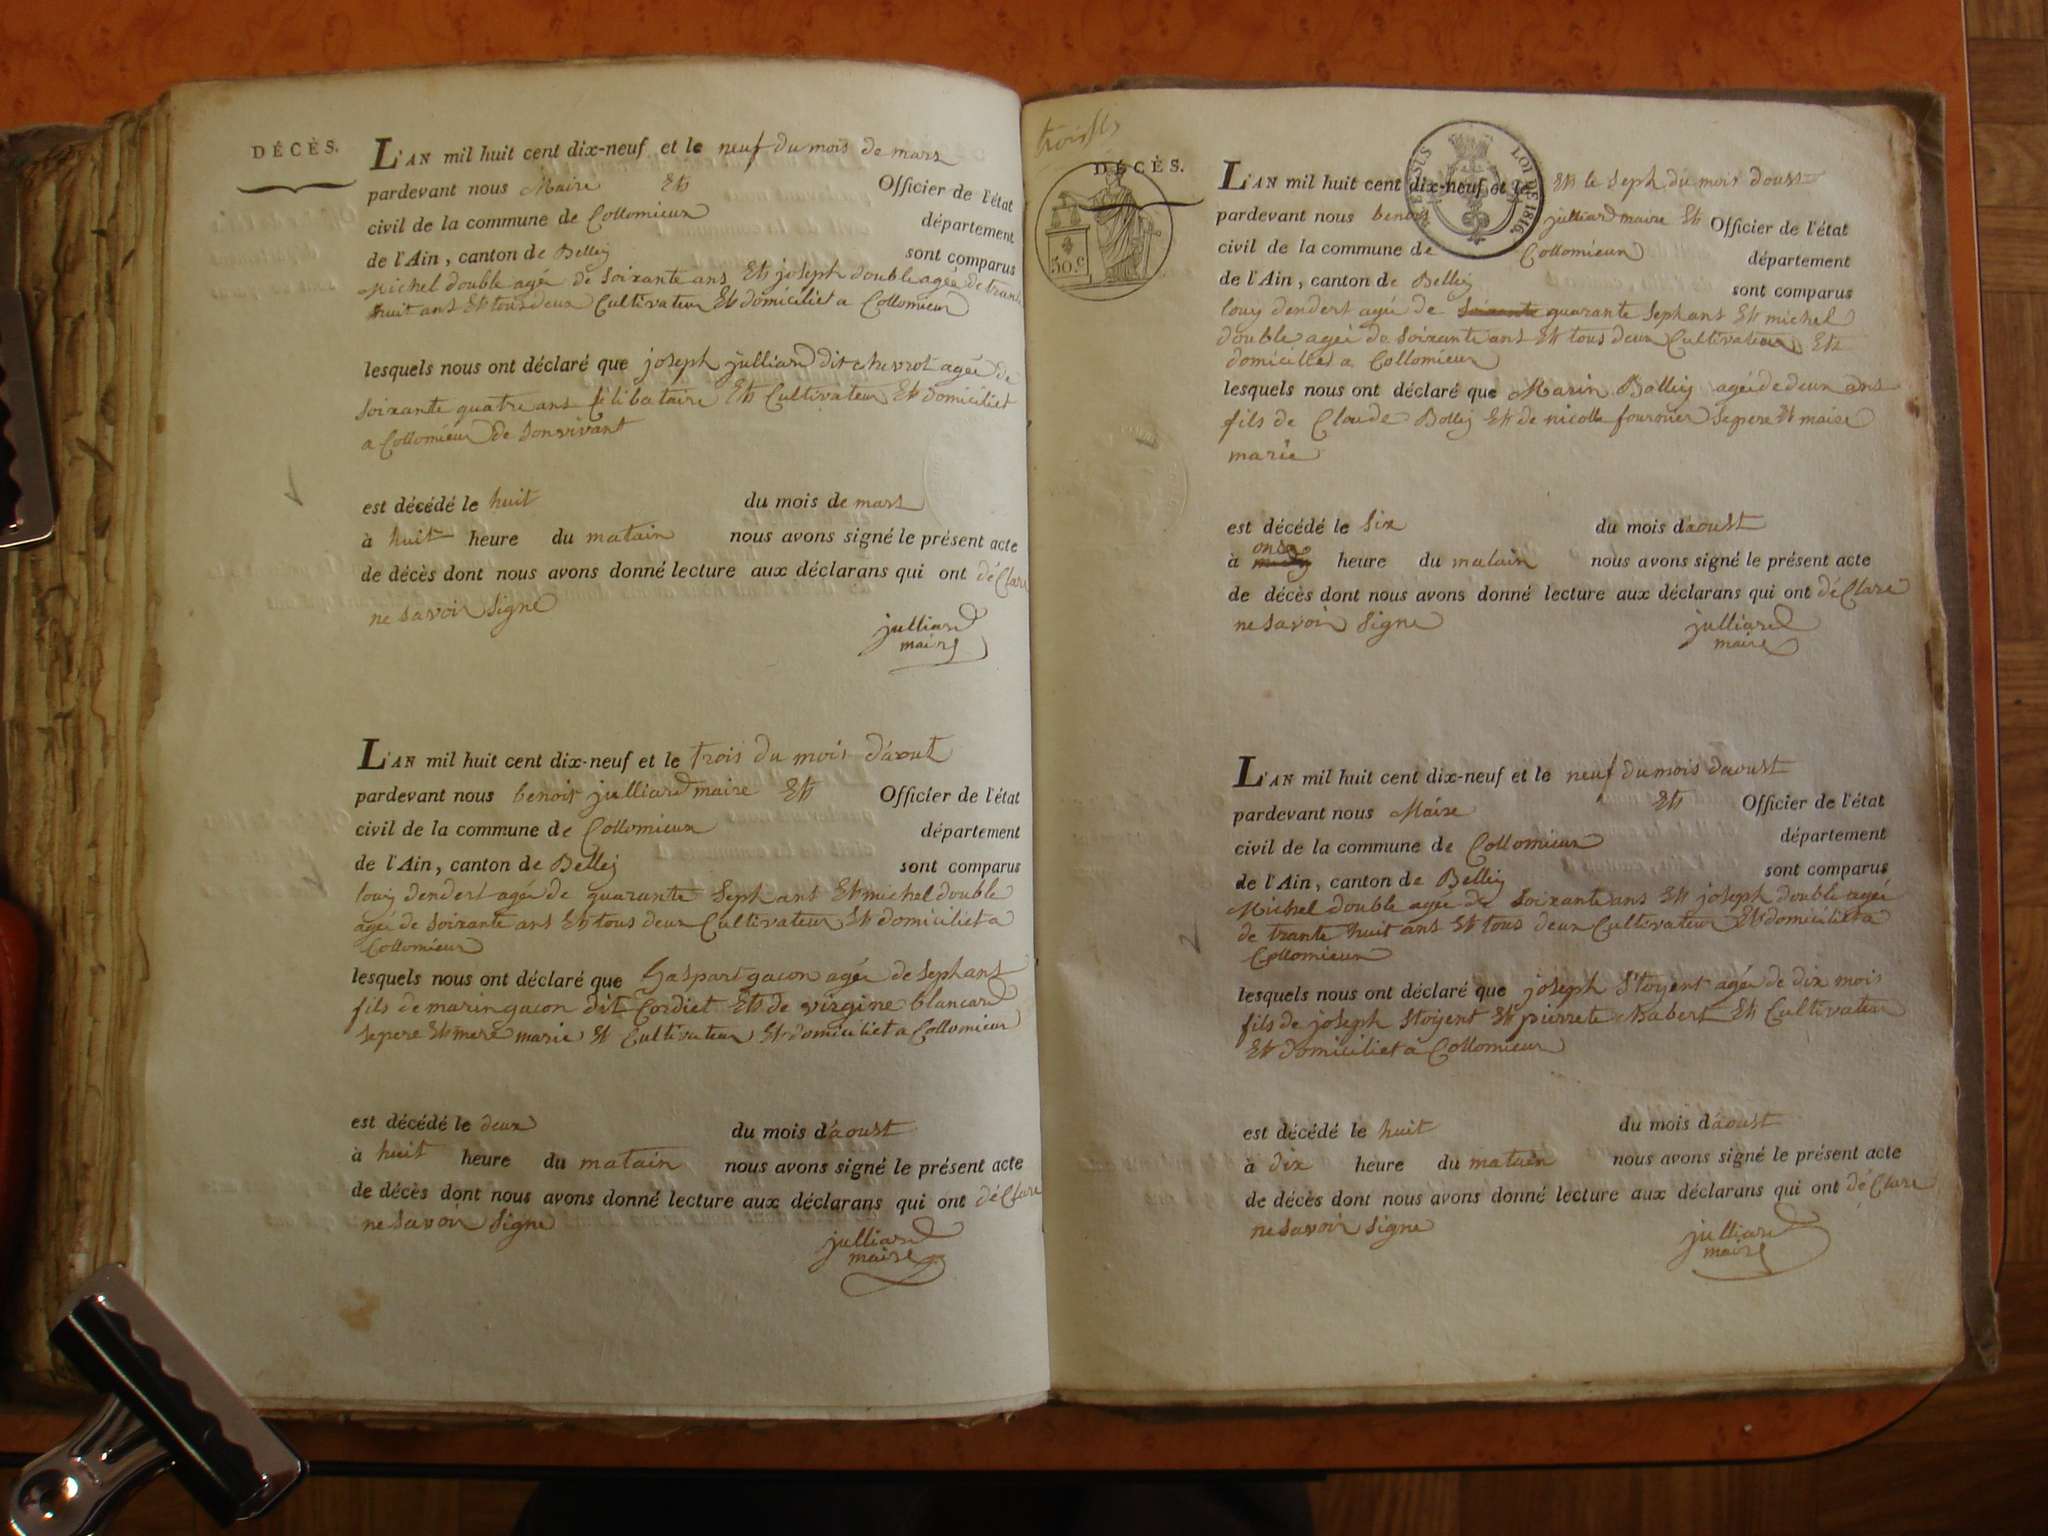 DÉCÈS.
L'AN mil huit cent dix-neuf et le neuf du mois de mars
pardevant nous Maire Et Officier de l'état
civil de la commune de Collomieux département
de l'Ain, canton de Belley sont comparus
Michel double agée de soixante ans Et joseph double agée de trante
huit ans Et tous deux Cultivateur Et domiciliet a Collomieux
lesquels nous ont déclaré que joseph julliard dit chevrot agée de
soixante quatre ans selibataire Et Cultivateur Et domiciliet
a Collomieux de son vivant
est décédé le huit du mois de mars
à huit heure du matain nous avons signé le présent acte
de décès dont nous avons donné lecture aux déclarans qui ont déClare
ne savoir signe
julliard
maire
L'AN mil huit cent dix-neuf et le trois du mois d'aout
pardevant nous benoit julliard maire Et Officier de l'état
civil de la commune de Collomieux département
de l'Ain, canton de Belley sont comparus
louy dendert agée de quarante Seph ans Et michel double
agée de soixante ans Et tous deux Cultivateur Et domiciliet a
Collomieux
lesquels nous ont déclaré que Gaspart gacon agée de Seph ans
fils de marin gacon dit Cordiet Et de virgine blancard
sepere Et mere marie Et Cultivateur Et domiciliet a Collomieux
est décédé le deux du mois d'aoust
à huit heure du matain nous avons signé le présent acte
de décès dont nous avons donné lecture aux déclarans qui ont déClare
ne savoir signe
julliard
maire
trois
DÉCÈS.
50 c
LOI DE 1816.
L'AN mil huit cent dix-neuf et le Et le Seph du mois doust
pardevant nous benoit julliard maire Et Officier de l'état
civil de la commune de Collomieux département
de l'Ain, canton de Belley sont comparus
louy dendert agée de soixante quarante Seph ans Et michel
double agée de soixante ans Et tous deux Cultivateur Et
domicilies a Collomieux
lesquels nous ont déclaré que Marin Bolley agée de deux ans
fils de Claude Bolley Et de nicolle fournier sepere Et maire
marie
est décédé le six du mois d'aoust
à onze heure du matain nous avons signé le présent acte
de décès dont nous avons donné lecture aux déclarans qui ont déClare
ne savoir signe
julliard
maire
L'AN mil huit cent dix-neuf et le neuf du mois daoust
pardevant nous Maire Et Officier de l'état
civil de la commune de Collomieux département
de l'Ain, canton de Belley sont comparus
Michel double agée de soixante ans Et joseph double agée
de trante huit ans Et tous deux Cultivateur Et domiciliet a
Collomieux
lesquels nous ont déclaré que joseph Stoyent agée de dix mois
fils de joseph Stoyent Et pierrete habert Et Cultivateur
Et domiciliet a Collomieux
est décédé le huit du mois d'aoust
à dix heure du matain nous avons signé le présent acte
de décès dont nous avons donné lecture aux déclarans qui ont déClare
ne savoir signe
julliard
maire